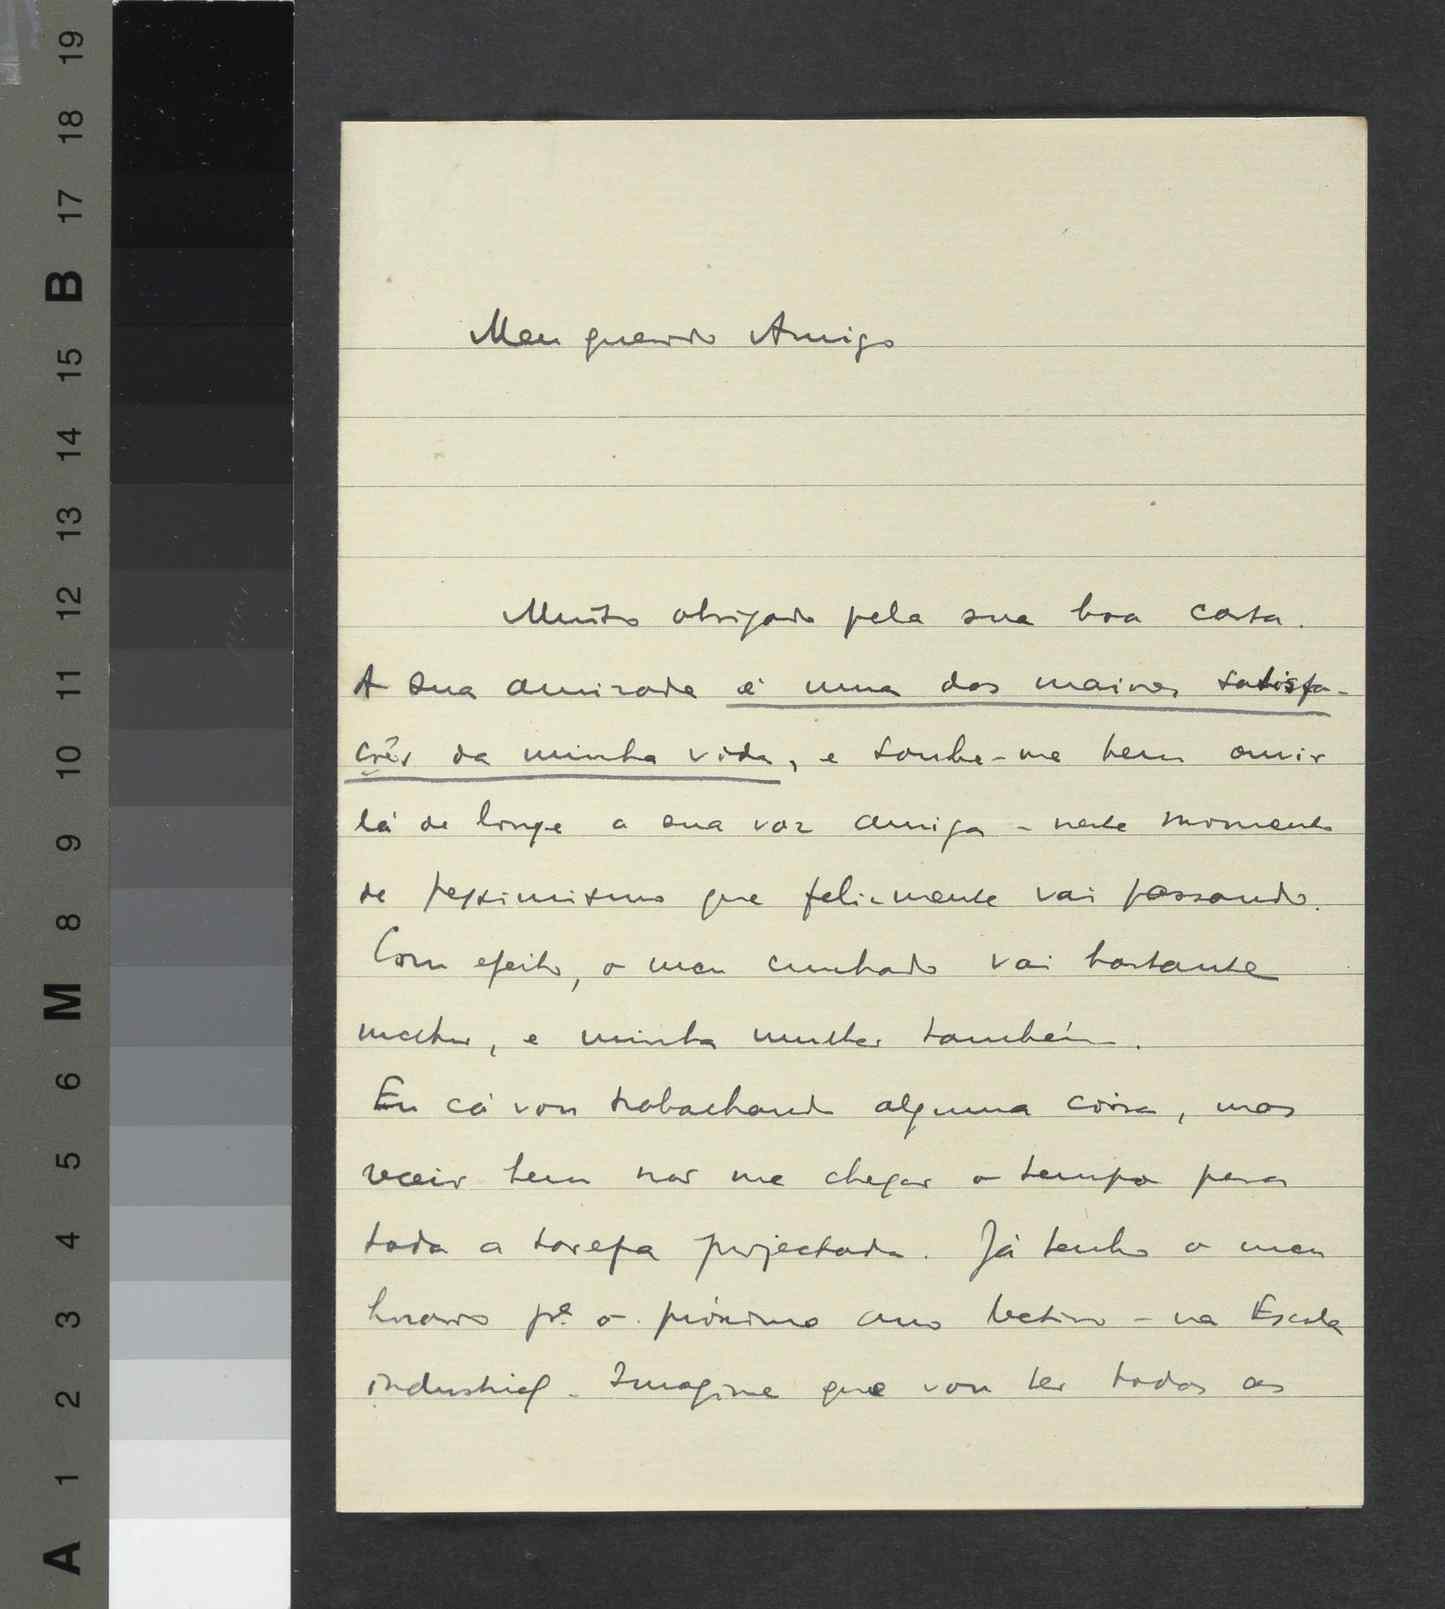 19
18
17
B
15
14
13
12
11
10
9
8
M
6
5
4
3
2
1
A
Meu querido Amigo
Muito obrigado pela sua boa carta.
A sua amizade é uma das maiores satisfa-
ções da minha vida, e soube-me bem ouvir
lá de longe a sua voz amiga - neste momento
de pessimismo que felizmente vai passando.
Com efeito, o meu cunhado vai bastante
melhor, e minha mulher também.
Eu cá vou trabalhando alguma coisa, mas
receio bem não me chegar o tempo para
toda a tarefa projectada. Já tenho o meu
horário pª o próximo ano lectivo - na Escola
industrial. Imagine que vou ter todas as